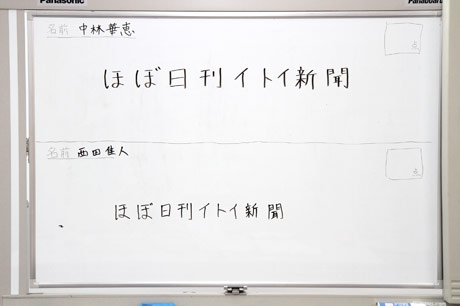 Panasonic
Panaboard
名前 中林華恵
点
ほぼ日刊イトイ新聞
名前 西田隼人
点
ほぼ日刊イトイ新聞